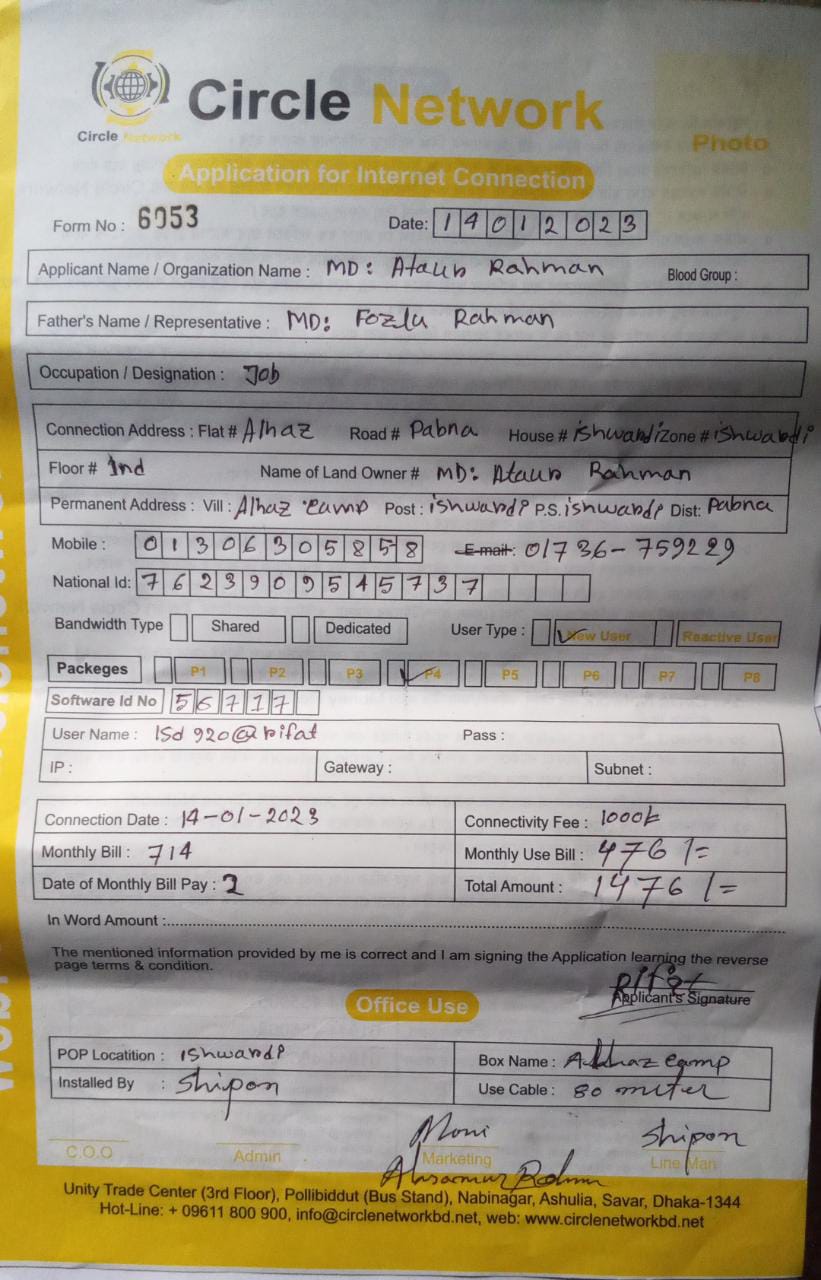 Circle Network
Circle Network
Photo
Application for Internet Connection
Form No : 6053 Date: 14012023
Applicant Name / Organization Name : MD: Ataur Rahman Blood Group :
Father's Name / Representative : MD: Fozlu Rahman
Occupation / Designation : Job
Connection Address : Flat # Alhaz Road # Pabna House # ishwardi Zone # ishwardi
Floor # 1nd Name of Land Owner # MD: Ataur Rahman
Permanent Address : Vill : Alhaz camp Post : ishwardi P.S. ishwardi Dist: Pabna
Mobile : 01306305858 E-mail: 01736-759229
National Id: 7623909545737
Bandwidth Type Shared Dedicated User Type : New User Reactive User
Packeges P1 P2 P3 P4 P5 P6 P7 P8
Software Id No 56717
User Name : ISd 920@rifat Pass :
IP : Gateway : Subnet :
Connection Date : 14-01-2023 Connectivity Fee : 1000/-
Monthly Bill : 714 Monthly Use Bill : 476 /=
Date of Monthly Bill Pay : 2 Total Amount : 1476 /=
In Word Amount :
The mentioned information provided by me is correct and I am signing the Application learning the reverse
page terms & condition.
Rifat
Applicant's Signature
Office Use
POP Locatition : Ishwardi Box Name : Alhaz camp
Installed By : Shipon Use Cable : 80 meter
Moni Shipon
C.O.O Admin Marketing Line Man
Unity Trade Center (3rd Floor), Pollibiddut (Bus Stand), Nabinagar, Ashulia, Savar, Dhaka-1344
Hot-Line: + 09611 800 900, info@circlenetworkbd.net, web: www.circlenetworkbd.net